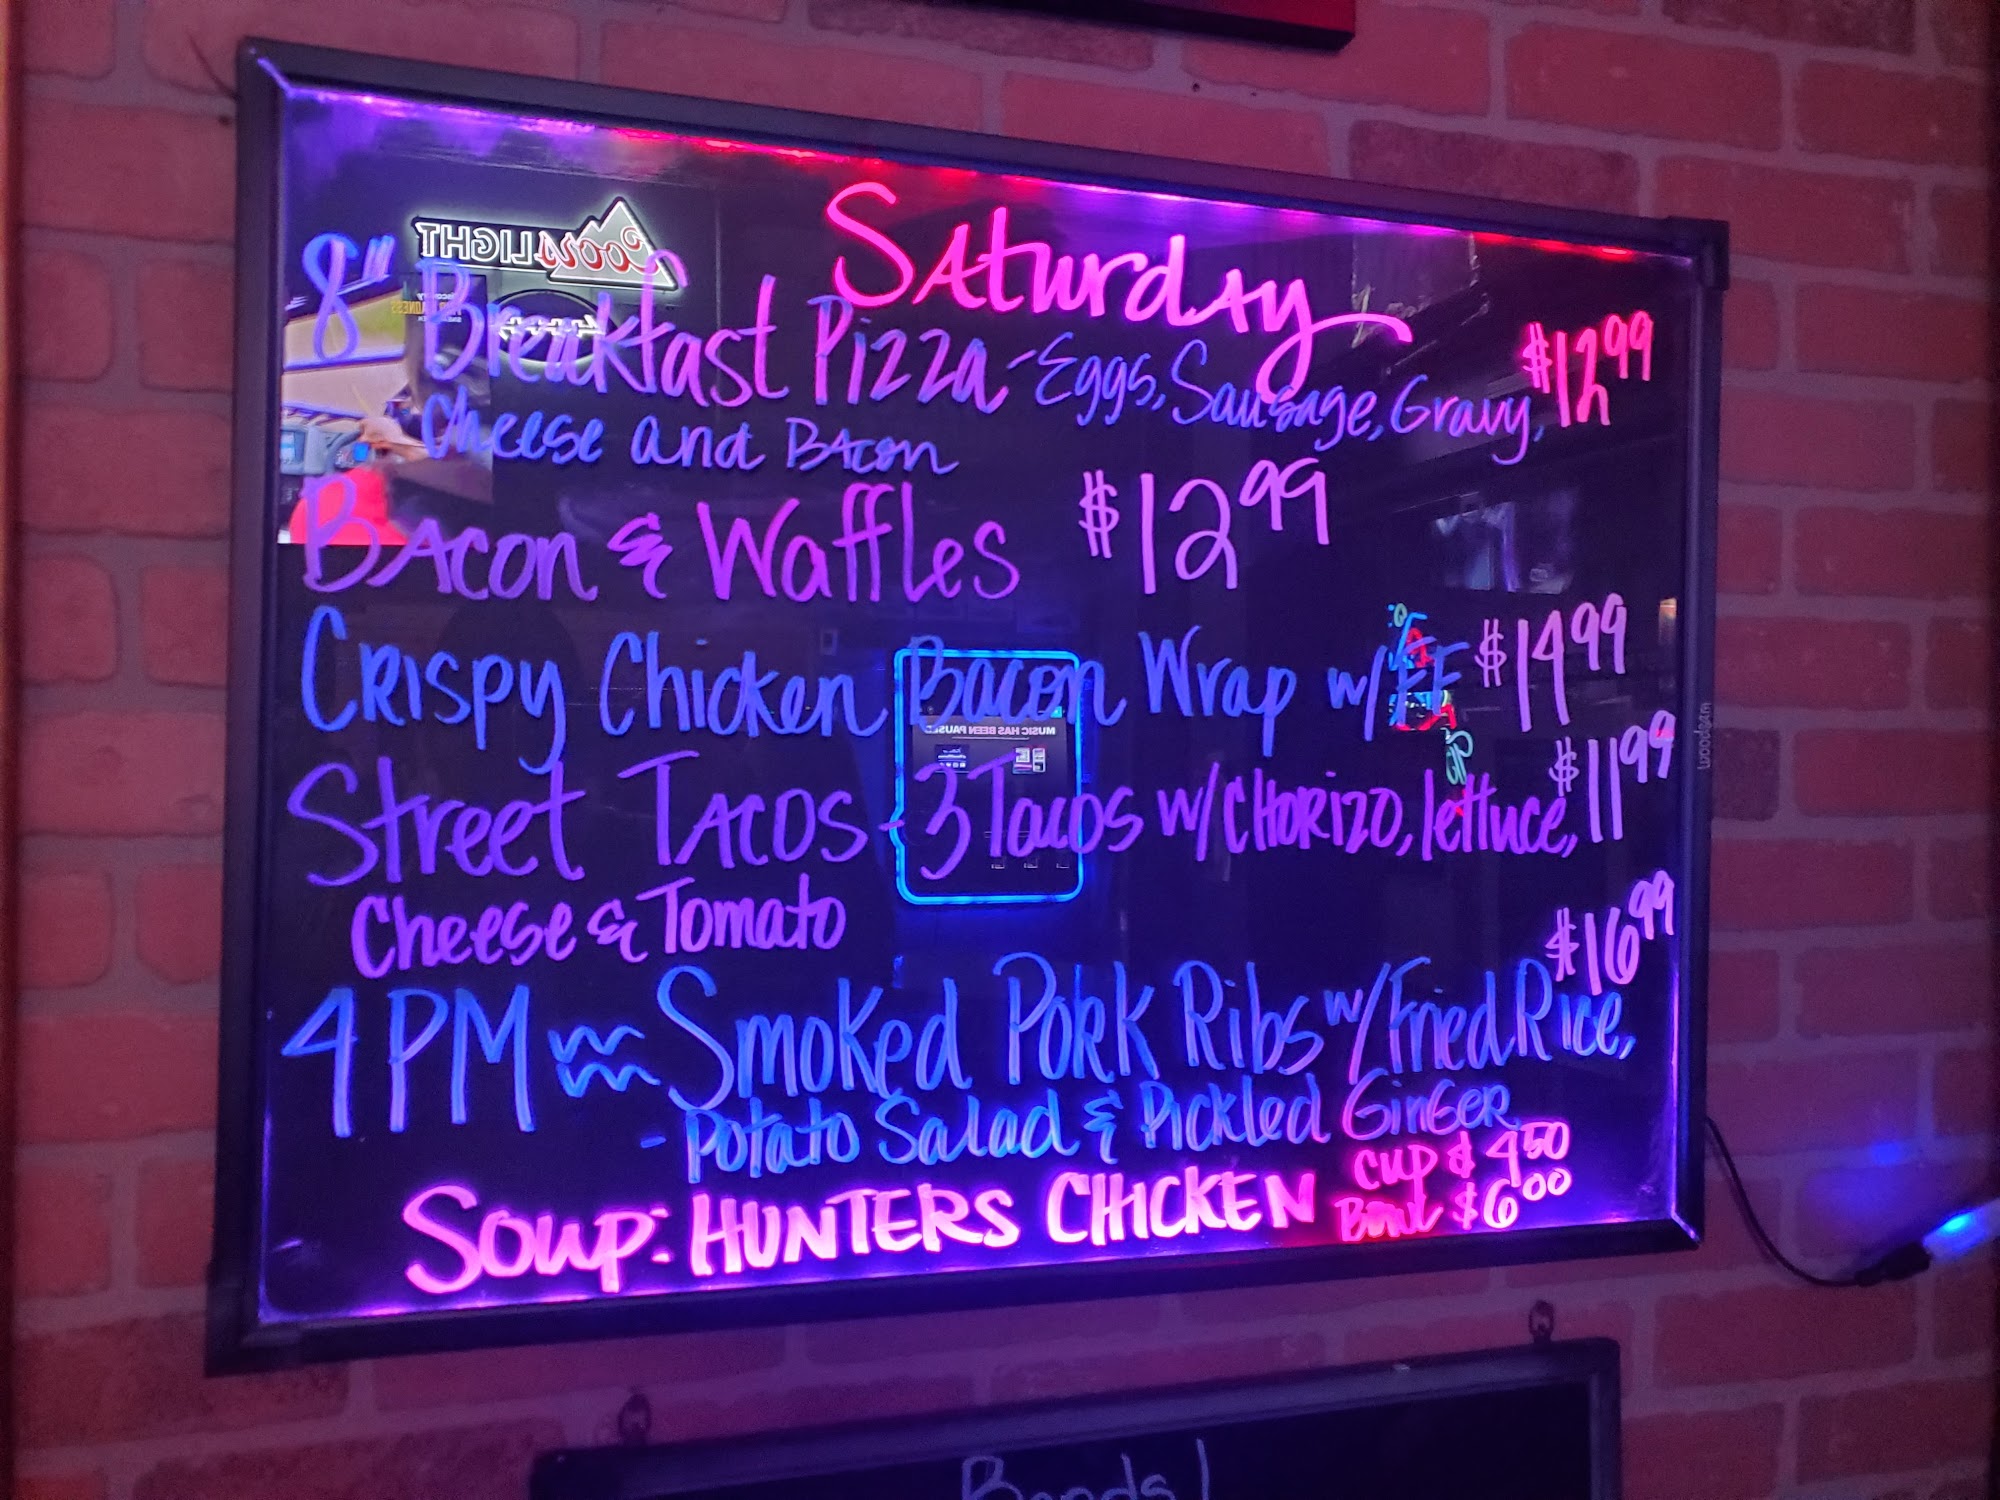 Saturday
8" Breakfast Pizza - Eggs, Sausage, Gravy, $12.99
Cheese and Bacon
Bacon & Waffles $12.99
Crispy Chicken Bacon Wrap w/FF $14.99
Street Tacos - 3 Tacos w/Chorizo, lettuce, $11.99
Cheese & Tomato
$16.99
4PM Smoked Pork Ribs w/Fried Rice,
- Potato Salad & Pickled Ginger
Soup: HUNTERS CHICKEN Cup $4.50
Bowl $6.00
Coors LIGHT
MUSIC HAS BEEN PAUSED
woodsam
Bands!